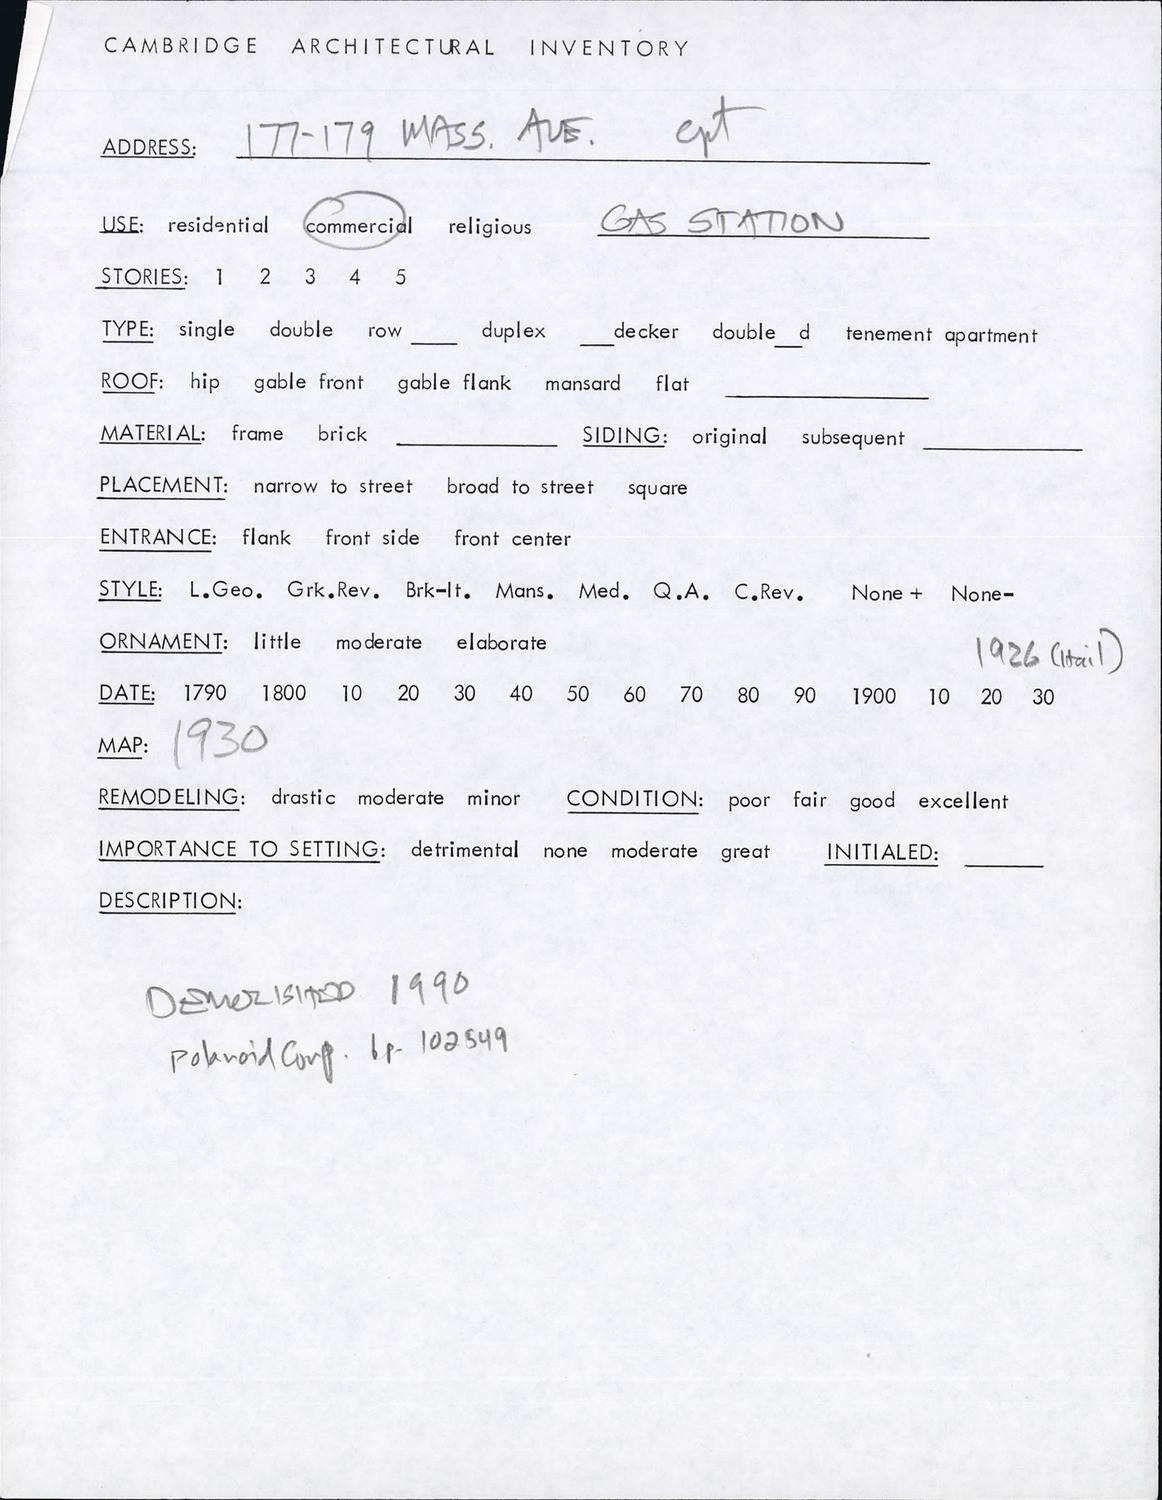 CAMBRIDGE ARCHITECTURAL INVENTORY
ADDRESS: 177-179 MASS. AVE. cpt
USE: residential commercial religious GAS STATION
STORIES: 1 2 3 4 5
TYPE: single double row ____ duplex ___decker double__d tenement apartment
ROOF: hip gable front gable flank mansard flat
MATERIAL: frame brick SIDING: original subsequent
PLACEMENT: narrow to street broad to street square
ENTRANCE: flank front side front center
STYLE: L.Geo. Grk.Rev. Brk-It. Mans. Med. Q.A. C.Rev. None + None-
ORNAMENT: little moderate elaborate
1926 (Hail)
DATE: 1790 1800 10 20 30 40 50 60 70 80 90 1900 10 20 30
MAP: 1930
REMODELING: drastic moderate minor CONDITION: poor fair good excellent
IMPORTANCE TO SETTING: detrimental none moderate great INITIALED:
DESCRIPTION:
DEMOLISHED 1990
Polaroid Corp. bp. 102549